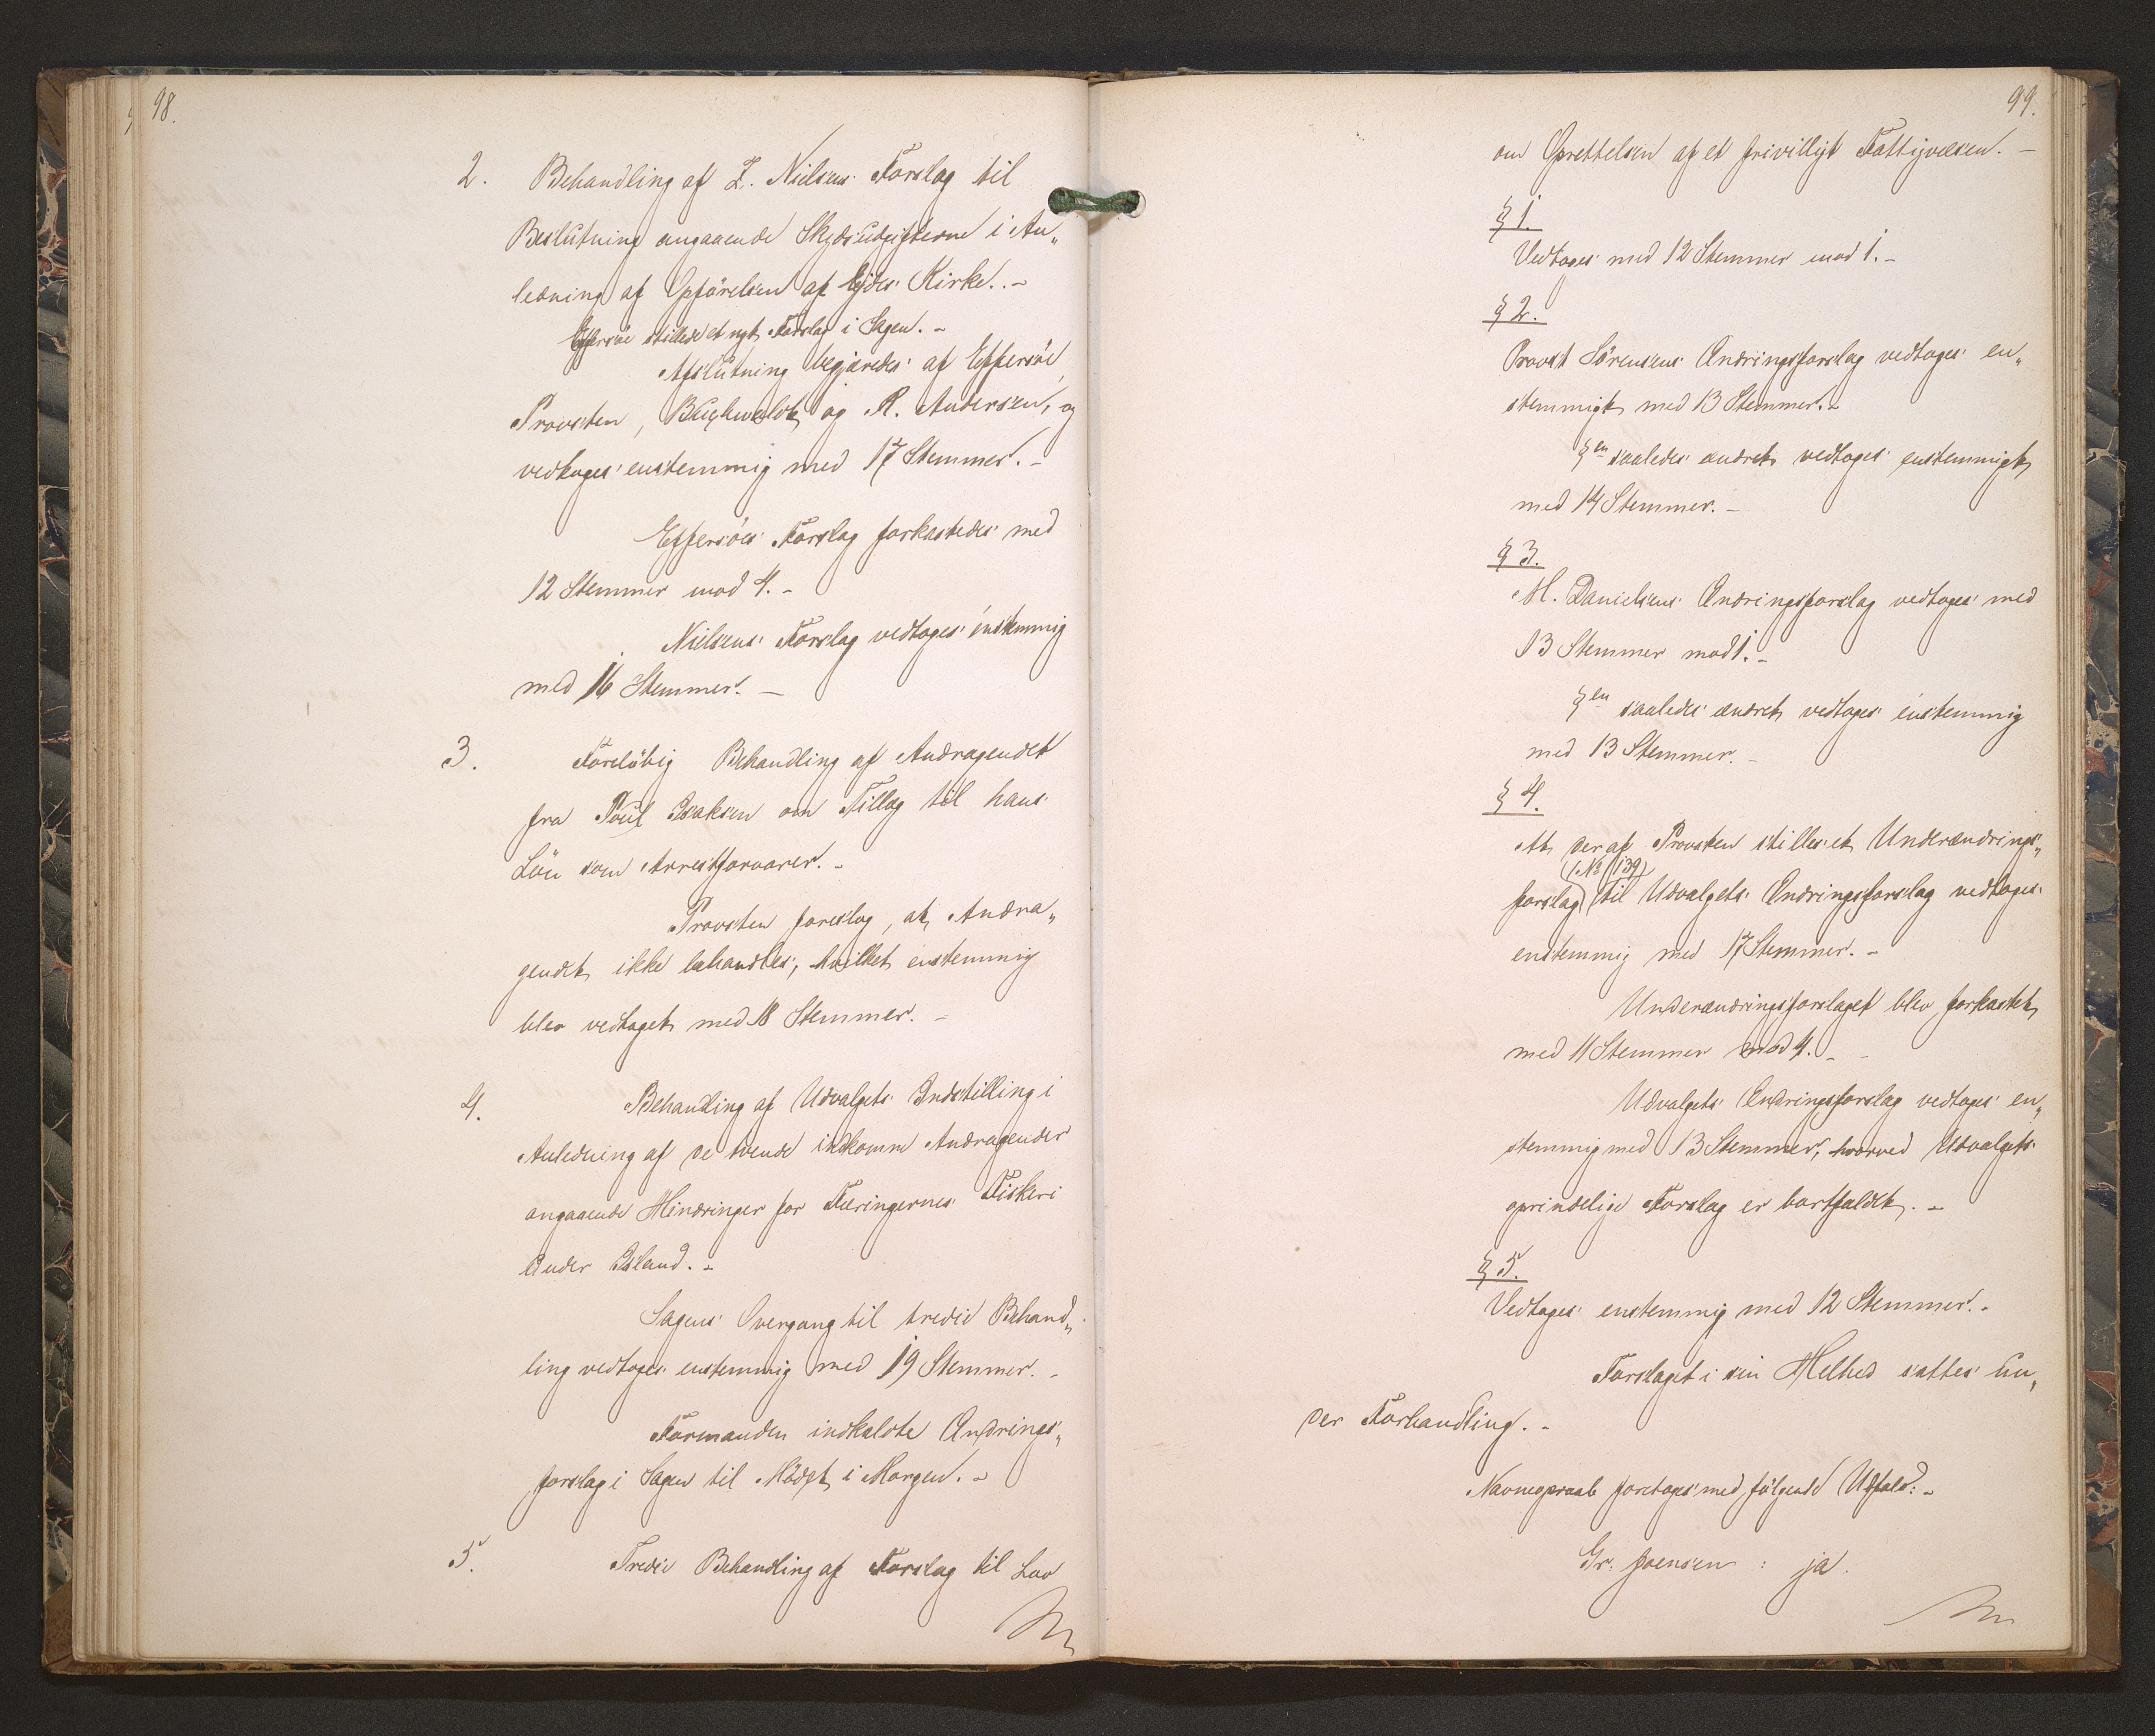 98.
2. Behandling af Z. Nielsens Forslag til
Beslutning angaaende Skydsudgifterne i An„
ledning af Opførelsen af Ejdes Kirke. -
Effersöe stillede et nyt Forslag i Sagen. -
Afslutning begjæredes af Effersöe,
Provsten, Buchwaldt og R. Andersen, og
vedtoges enstemmig med 17 Stemmer. -
Effersöes Forslag forkastedes med
12 Stemmer mod 4. -
Nielsens Forslag vedtoges enstemmig
med 16 Stemmer. -
3. Foreløbig Behandling af Andragendet
fra Poul Isaksen om Tillæg til hans
Løn som Arrestforvarer. -
Provsten foreslog, at Andra„
gendet ikke behandles, hvilket enstemmig
blev vedtaget med 18 Stemmer. -
4. Behandling af Udvalgets Indstilling i
Anledning af de tvende indkomne Andragender
angaaende Hindringer for Færingernes Fiskeri
under Island. -
Sagens Overgang til tredie Behand„
ling vedtoges enstemmig med 19 Stemmer. -
Formanden indkaldte Ændrings„
forslag i Sagen til Mødet i Morgen. -
5. Tredie Behandling af Forslag til Lov
99.
om Oprettelsen af et frivilligt Fattigvæsen. -
§ 1.
Vedtoges med 12 Stemmer mod 1. -
§ 2.
Provst Sørensens Ændringsforslag vedtoges en„
stemmigt med 13 Stemmer. -
§en saaledes ændret vedtoges enstemmigt
med 14 Stemmer. -
§ 3.
M. Danielsens Ændringsforslag vedtoges med
13 Stemmer mod 1. -
§en saaledes ændret vedtoges enstemmig
med 13 Stemmer. -
§ 4.
At der af Provsten stilles et Underændrings„
(No 139)
forslag til Udvalgets Ændringsforslag vedtoges
enstemmig med 17 Stemmer. -
Underændringsforslaget blev forkastet
med 11 Stemmer mod 4. -
Udvalgets Ændringsforslag vedtoges en„
stemmig med 13 Stemmer, hvorved Udvalgets
oprindelige Forslag er bortfaldet. -
§ 5.
Vedtoges enstemmig med 12 Stemmer. -
Forslaget i sin Helhed sattes un„
der Forhandling. -
Navneopraab foretoges med følgende Udfald: -
Gr. Joensen : ja.